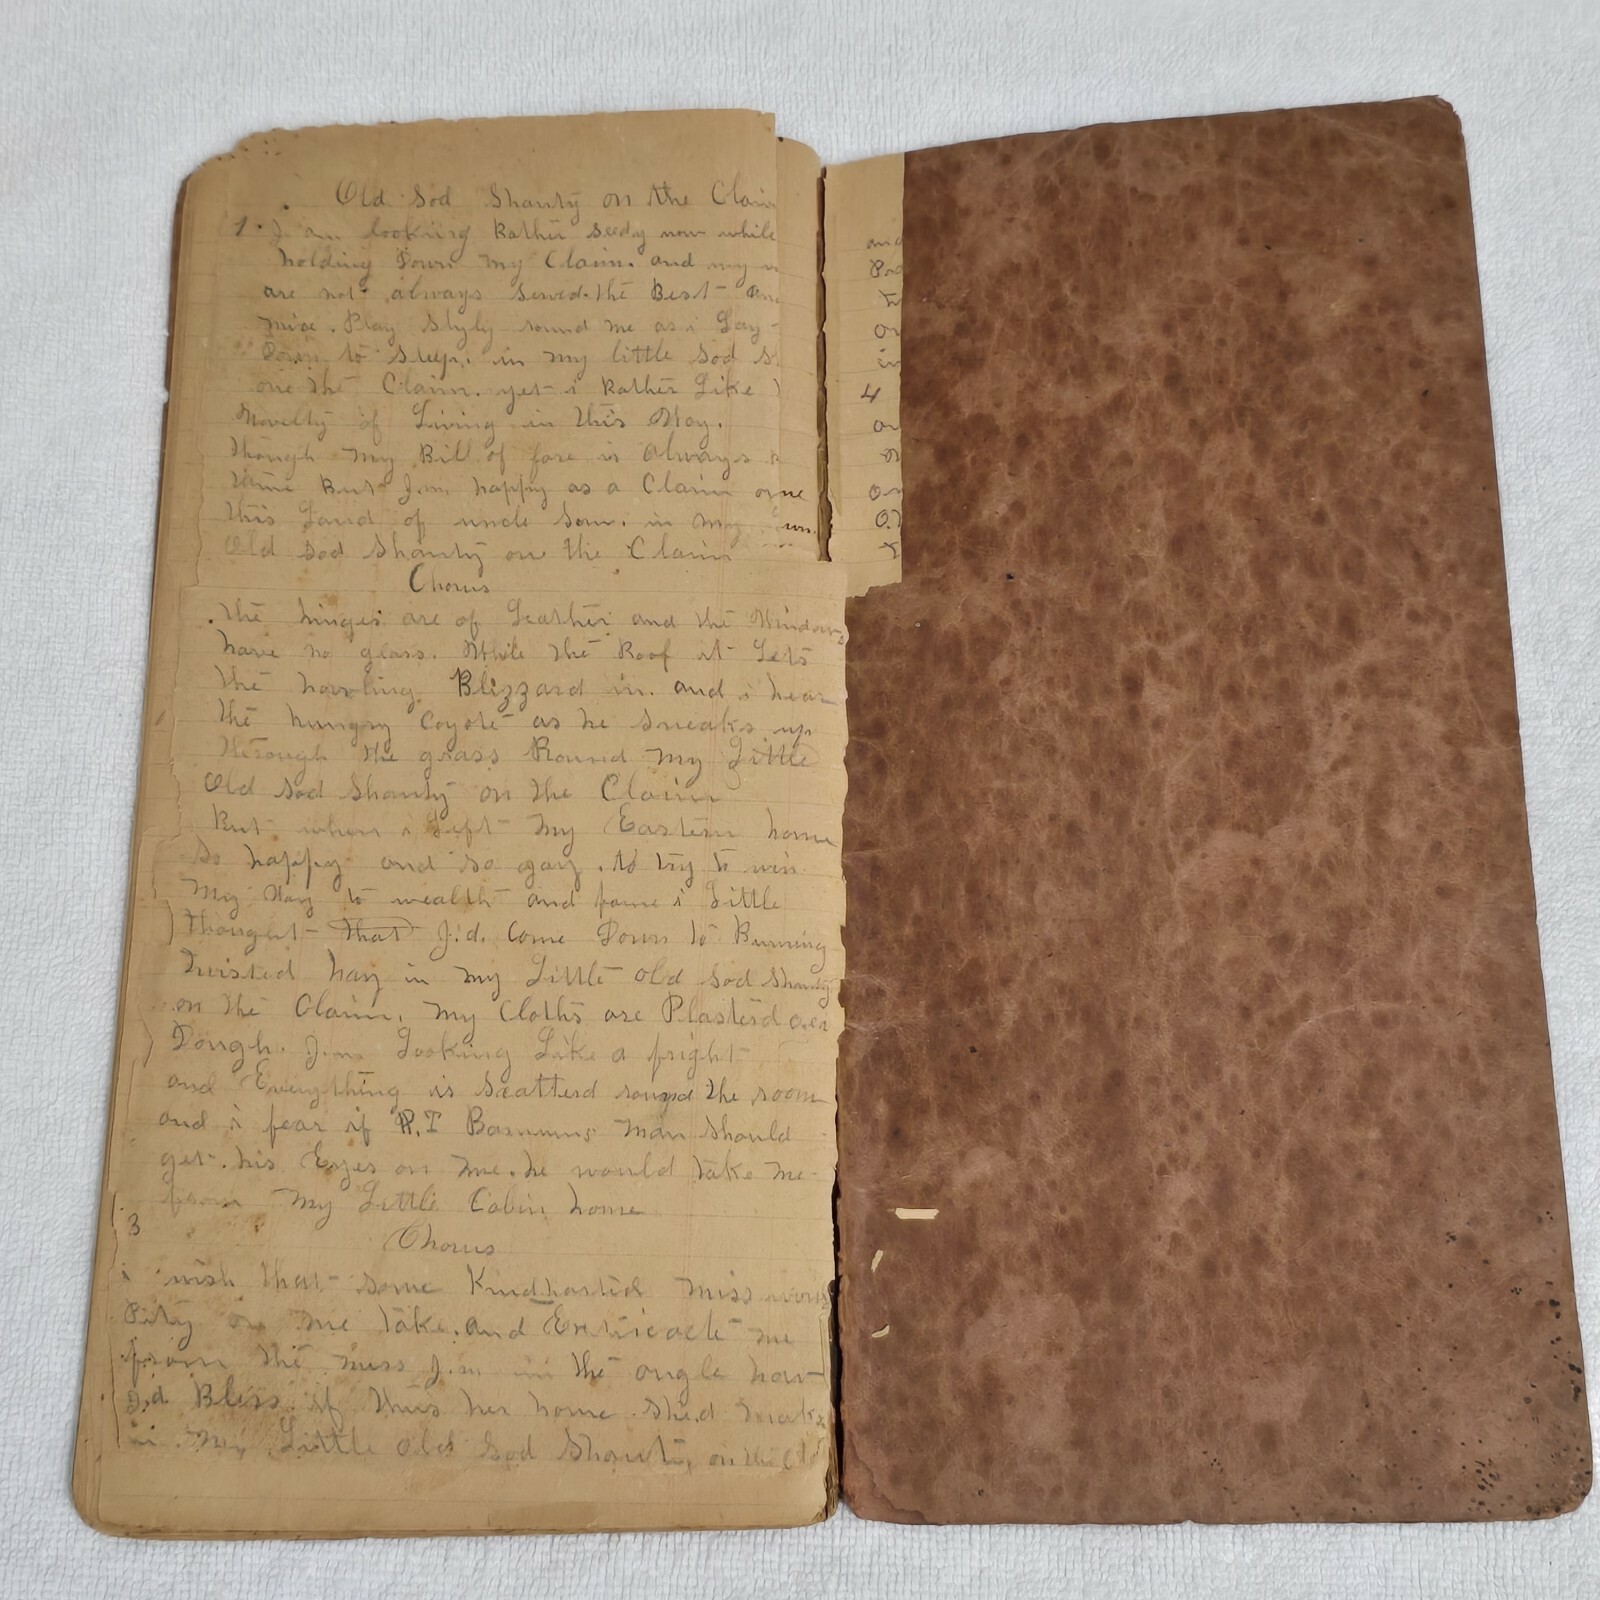 Old Sod Shanty on the Claim
1. I am looking Rather seedy now while
holding Down my Claim. and my
are not always served the Best
mice. Play Slyly round me as i Lay
Down to sleep. in my little Sod S
one the Claim. yet i Rather Like
Novelty of Living in this Way.
though my Bill of fare is always
tame But I.m happy as a Claim one
this Land of uncle Som. in my own
Old Sod Shanty one the Claim
Chorus
the hinges are of Leather and the Windows
have no glass. While the Roof it Lets
the howling Blizzard in. and i hear
the hungry Coyote as he sneaks up
through the grass Round my Little
Old Sod Shanty on the Claim
But when i Left my Eastern home
So happy and so gay. to try to win
My Way to wealth and fame i Little
thought that I.d. Come Down to Burning
Twisted hay in my Little old Sod Shanty
on the Claim. my Cloths are Plasterd over
Dough. I.m Looking Like a fright
and Everything is Scatterd round the room
and i fear if P.T Barnums man should
get his Eyes on me. he would take me
from my Little Cabin home
3
Chorus
i wish that some Kindharted Miss
Pity on me take. and me
from the mess I.m in the angle
I.d Bless if this her home she.d make
in My Little old Sod Shanty on the
and
to
on
in
4
on